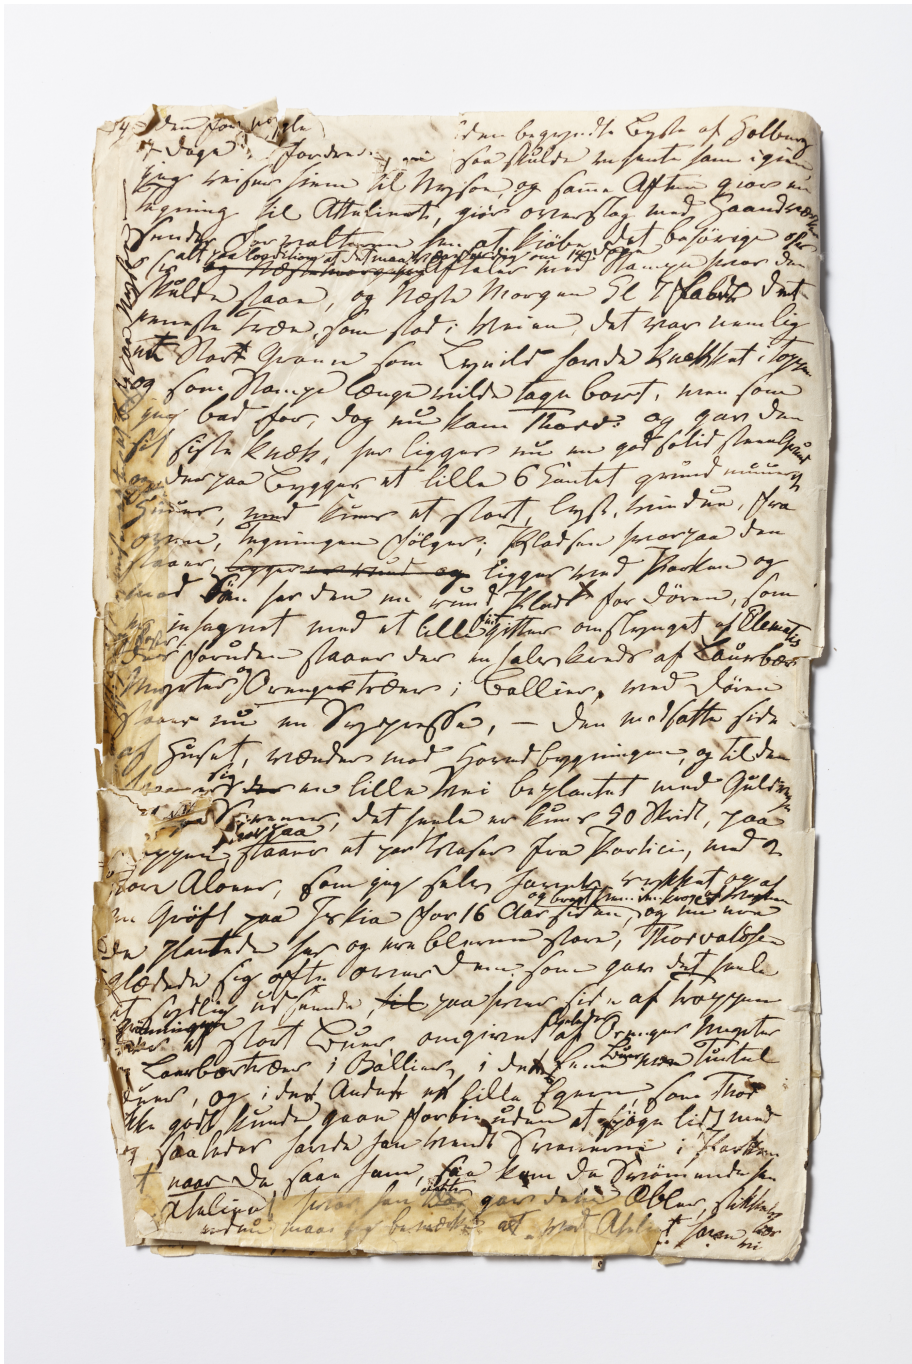 den begyndte Byste af Holberg
Dage saa skulde hente ham igien
jeg reiser hiem til Nysøe, og samme Aften giør en
Tegning til Atteliret, giør overslag med Haandværker
Forvalteren at kiøbe det behörige
alt paa Condition at det maa være færdig om 14 Dage
aftaler med Stampe hvor den
skulde staae, og Næste Morgen Kl 7 faldt det
eneste Træe, som stod i Veien, det var nemlig
et Stort Gran som Lynild havde knækket i Toppen
og som Stampe længe vilde tage bort, men som
jeg bad for, dog nu kom Thord: og gav den
sit sidste knæk, her ligger nu en god solid steen Grund
og derpaa bygges et lille 6 Kantet grund muuret
Huus, med kuns et stort lyst vindue, fra
oven, Tegningen følger; Pladsen hvorpaa den
staaer, ligger ved Parken og
mod Søen har den en rund Plads for Døren, som
er indhegnet med et lille gitter omslynget af Clematis
foruden staaer der en halvkreds af Laurbær
Myrter og Orangetræer i Ballier, ved Døren
staaer nu en Sypresse, — den modsatte side
af Huset, vænder mod Hovedbygningen, og til den
er en lille Vei beplantet med Guldregn
Sirener, det heele er kuns 50 Skridt, paa
Trappen staaer et par Vaser fra Portici, med 2
store Aloeer, som jeg selv havde rykket op af
en Grøft paa Iskia for 16 Aar siden, og nu ere
de plantede her og ere blevne store, Thorvaldsen
glædede sig ofte over dem, som gav det heele
et sydlig udseende, paa hver side af trappen
et stort Buur omgivet af Oranger Myrter
og Laurbærtræer i Ballier, i det Ene Buur ere Turtel
duer, og i det Andet et lille Egern, som Thor
ikke godt kunde gaae forbi uden at spøge lidt med
og saaledes havde han vendt Svanerne i Parken
naar de saae ham, saa kom de Svømmende hen
Atteliret hvor han gav dem Æbler, stikker
maa jeg bemærke at ved